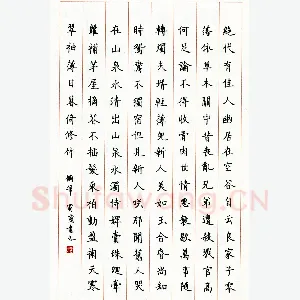 絕代有佳人幽居在空谷自云良家子零
落依草木關中昔喪亂兄弟遭殺戮官高
何足論不得收骨肉世情惡衰歇萬事隨
轉燭夫壻輕薄兒新人美如玉合昏尚知
時鴛鴦不獨宿但見新人笑那聞舊人哭
在山泉水清出山泉水濁侍婢賣珠迴牽
蘿補茅屋摘花不插髮采柏動盈掬天寒
翠袖薄日暮倚修竹
Shufawang.CN